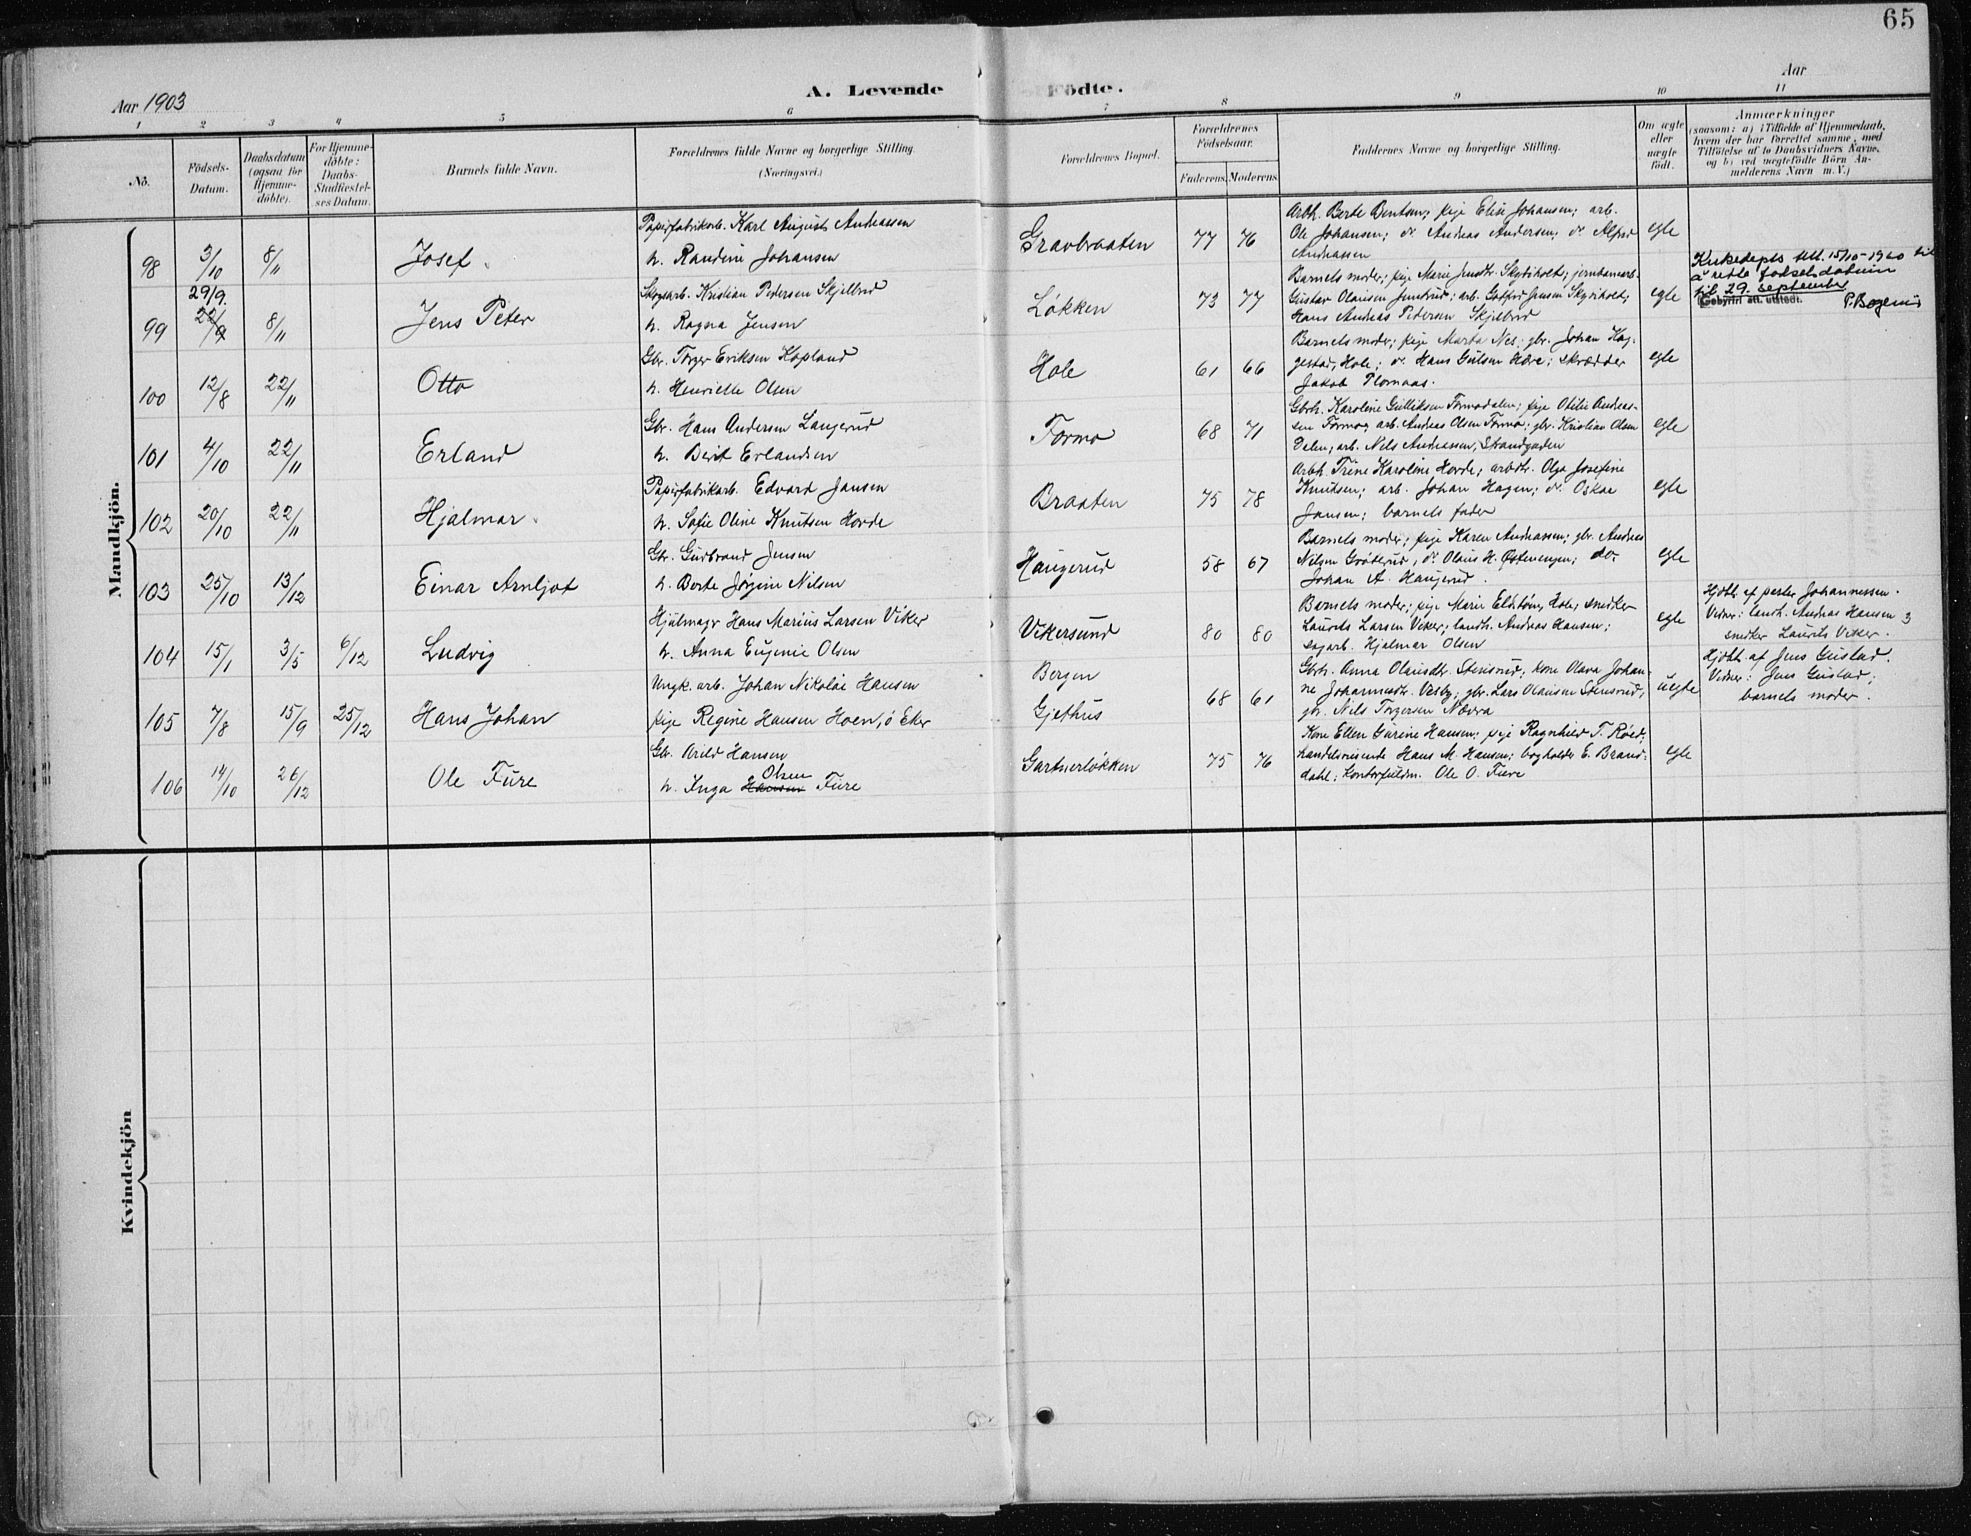 65
Aar 1903
A. Levende Födte.
Aar
1 2 3 4 5 6 7 8 9 10 11
No.
Födsels-Datum.
Daabsdatum (ogsaa for Hjemme-döbte).
For Hjemme-döbte: Daabs-Stadfæstel-ses Datum.
Barnets fulde Navn.
Forældrenes fulde Navne og borgerlige Stilling.
(Næringsvei.)
Forældrenes Bopæl.
Forældrenes Födselsaar.
Faderens. Moderens.
Faddernes Navne og borgerlige Stilling.
Om ægte eller uægte födt.
Anmærkninger
(saasom: a) i Tilfælde af Hjemmedaab,
hvem der har forrettet samme, med
Tilföielse af to Daabsvidners Navne,
og b) ved uægtefödte Börn An-
melderens Navn m. V.)
Mandkjön.
98 3/10 8/11 Josef
Papirfabrikarb. Karl August Andreassen
h. Randine Johansen
Gravbraaten 77 76
Arbh. Berte Bentsen; pige Elise Johansen; arb.
Ole Johansen; do Andreas Andersen; do Alfred
Andreassen
egte
99 29/9. 22/9 8/11 Jens Peter
Skogsarb. Kristian Pedersen Skjelbred
h. Ragna Jensen
Løkken 73 77
Barnets moder; pige Marie Jensdtr. Skydsholt; jernbanearb.
Gustav Olausen Jensrud; arb. Gotfred Jensen Skydsholt;
Hans Andreas Pedersen Skjelbred
egte
Kirkedepts till. 15/10-1920 til
å rette fødselsdatum
til 29. september
P. Bogenis
100 12/8 22/11 Otto
Gbr. Torger Eriksen Kopland
h. Henriette Olsen
Hole 61 66
Barnets moder; pige Marta Nes; gbr. Johan Hag-
gestad, Hole; do Hans Gulsen Hære; skrædder
Jakob Plomaas.
egte
101 4/10 22/11 Erland
Gbr. Hans Andersen Langerud
h. Berit Erlandsen
Formo 68 71
Gbrh. Karoline Gulliksen Formodalen; pige Otilie Andreas-
sen Formo; arb. Andreas Olsen Formo; gbr. Kristian Olsen
Dalen; arb. Nels Andreassen, Strandgaden
egte
102 20/10 22/11 Hjalmar
Papirfabrikarb. Edvard Jansen
h. Sofie Oline Knutsen Horde
Braaten 75 78
Arbh. Trine Karoline Horde; arbdtr. Olga Josefine
Knutsen; arb. Johan Hagen; do Oskar
Jansen; barnets fader
egte
103 25/10 13/12 Einar Arnljot
Gbr. Gudbrand Jensen
h. Berte Jørgine Nilsen
Haugerud 58 67
Barnets moder; pige Karen Andreassen; gbr. Andreas
Nilsen Grøterud; do Olaus H. Østevengen; do
Johan A. Haugerud.
egte
104 15/1 3/5 6/12 Ludvig
Hjulmager Hans Marius Larsen Viker
h. Anna Eugenie Olsen
Vikersund 80 80
Barnets moder; pige Marie Eldstøen, Hole; snedker
Laurits Larsen Viker; landh. Andreas Hansen;
sagarb. Hjalmar Olsen
egte
Hjdbt. af perler Johannessen.
Vidner: landh. Andreas Hansen &
snedker Laurits Viker.
105 7/8 15/9 25/12 Hans Johan
Ungk. arb. Johan Nikolai Hansen
pige Regine Hansen Hoen, ø. Eker
Bergen
Gjethus 68 61
Gbrh. Anna Olausdtr. Stensrud; kone Olava Johan-
ne Johannesdtr. Vesby; gbr. Lars Olausen Stensrud;
gbr. Nils Torgersen Nævra
uegte
Hjdbt. af Jens Gustad.
Vidner: Jens Gustad;
barnets moder.
106 14/10 26/12 Ole Fure
Gbr. Arild Hansen
h. Inga Hansen Olsen Fure
Gartnerløkken 75 76
Kone Ellen Gurine Hansen; pige Ragnhild T. Røed;
handelsreisende Hans M. Hansen; bogholder E. Brand-
dahl; kontorfuldm. Ole O. Fure
egte
Kvindekjön